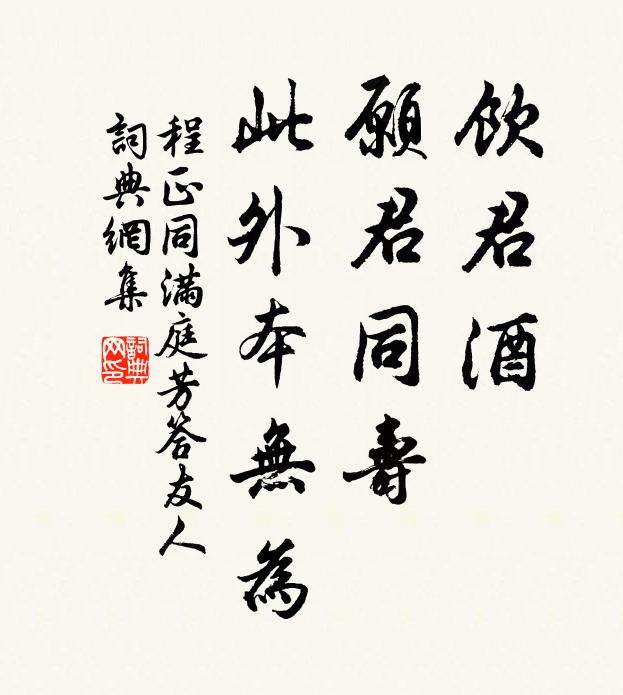 飲君酒
願君同壽
此外本無為
程正同滿庭芳答友人
詞典網集
詞典網印